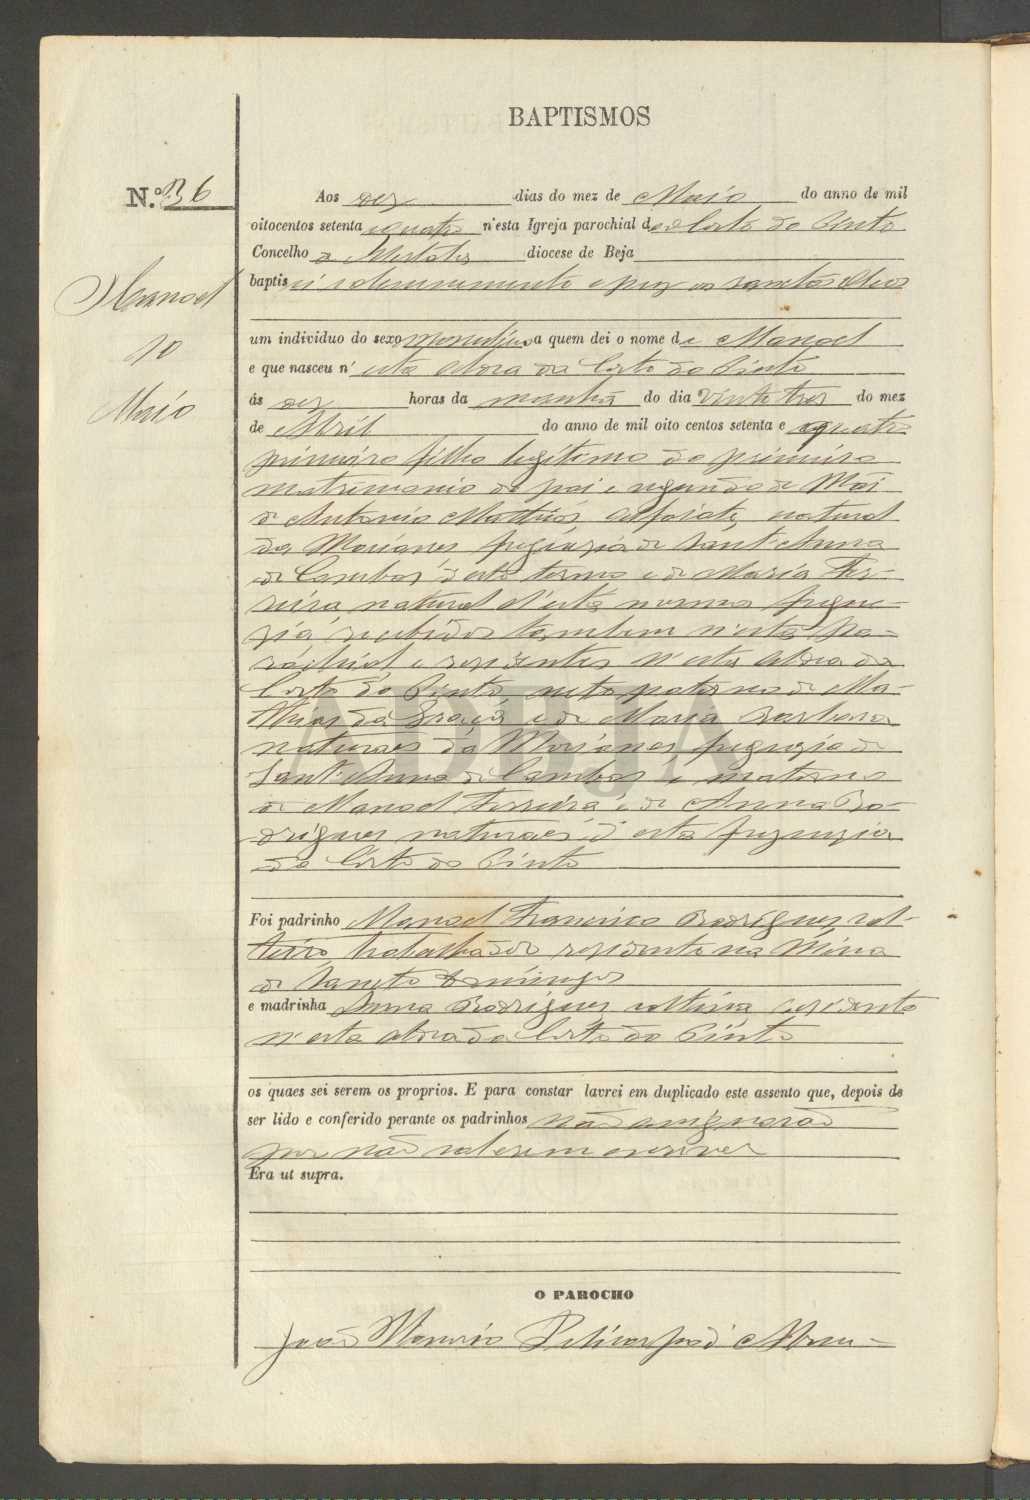 BAPTISMOS
N.º 36
Manoel
10
Maio
Aos dez dias do mez de Maio do anno de mil
oitocentos setenta e quatro n'esta Igreja parochial de Corte do Pinto
Concelho de Mertola diocese de Beja
baptisei solemnemente e puz os sanctos oleos
um individuo do sexo masculino a quem dei o nome de Manoel
e que nasceu n'esta Aldea da Corte do Pinto
ás dez horas da manhã do dia vinte tres do mez
de Abril do anno de mil oito centos setenta e quatro
primeiro filho legitimo do primeiro
matrimonio do pai e segundo da Mãi
de Antonio Mathias, alfaiate, natural
de Moreanes freguezia de Sant'Anna
de Cambas d'este termo e de Maria Fer-
reira natural d'esta mesma fregue-
zia recebidos tambem n'esta pa-
rochial e residentes n'esta Aldea da
Corte do Pinto, neto paterno de Ma-
thias da Graça e de Maria Barbara
naturaes de Moreanes freguezia de
Sant'Anna de Cambas e materno
de Manoel Ferreira e de Anna Ro-
drigues naturaes d'esta freguezia
da Corte do Pinto
Foi padrinho Manoel Francisco Rodrigues sol-
teiro trabalhador residente na Mina
de Sancto Domingos
e madrinha Anna Rodrigues solteira residente
n'esta aldea da Corte do Pinto
os quaes sei serem os proprios. E para constar lavrei em duplicado este assento que, depois de
ser lido e conferido perante os padrinhos não assignarão
por não saberem escrever
Era ut supra.
O PAROCHO
João Policarpo d'Abreu
ADBJA